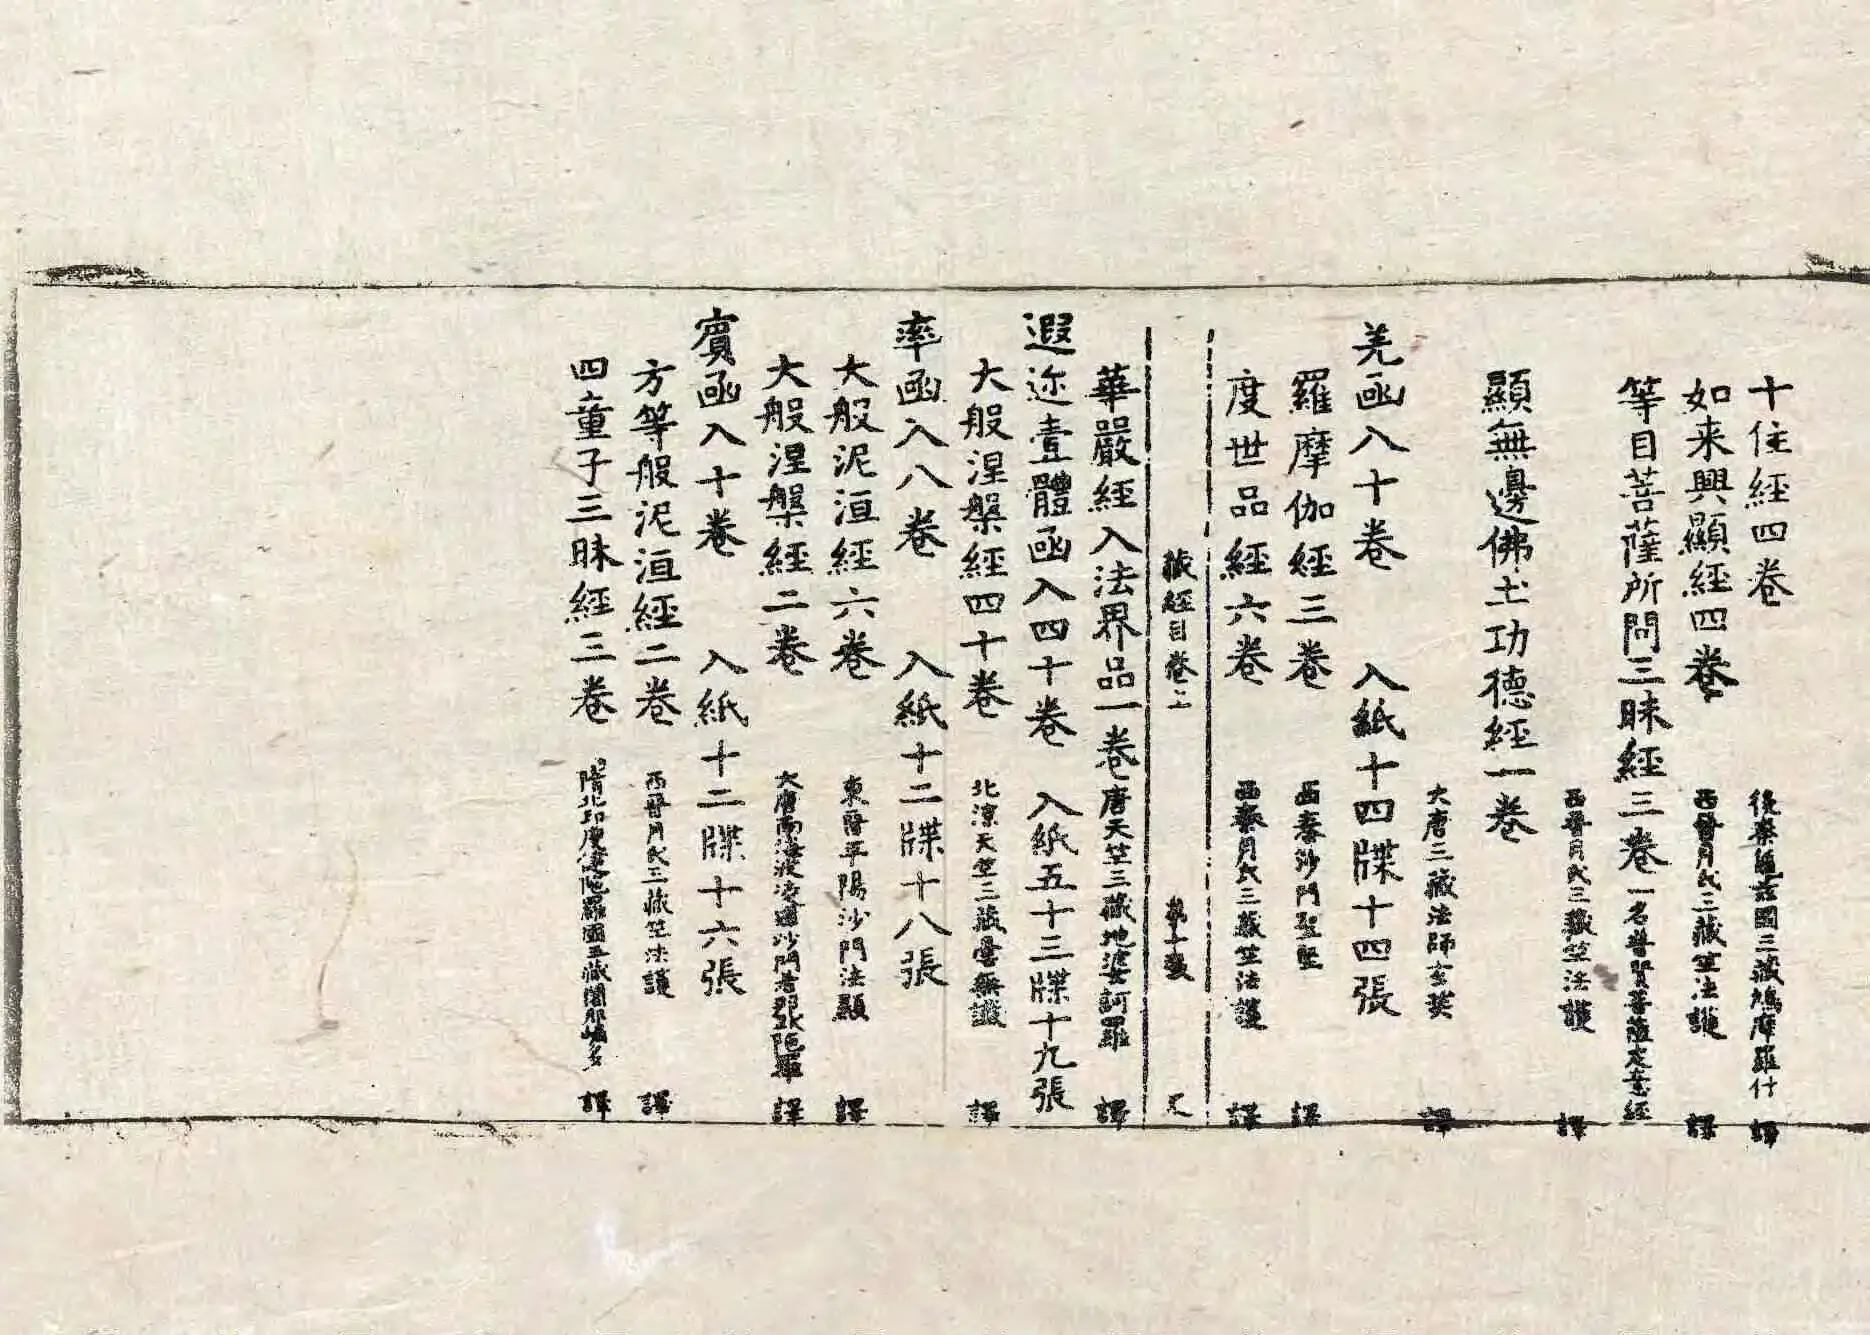 十住經四卷 後秦龜茲國三藏鳩摩羅什 譯
如来興顯經四卷 西晉月氏三藏竺法護 譯
等目菩薩所問三昧經三卷 一名普賢菩薩定意經
西晉月氏三藏竺法護 譯
顯無邊佛土功德經一卷
大唐三藏法師玄奘 譯
羌函入十卷 入紙十四牒十四張
羅摩伽經三卷 西秦沙門聖堅 譯
度世品經六卷 西秦月氏三藏竺法護 譯
藏經目卷上
華嚴經入法界品一卷 唐天竺三藏地婆訶羅 譯
遐迩壹體函入四十卷 入紙五十三牒十九張
大般涅槃經四十卷 北凉天竺三藏曇無讖 譯
率函入八卷 入紙十二牒十八張
大般泥洹經六卷 東晉平陽沙門法顯 譯
大般涅槃經二卷 大唐南海波淩國沙門若那跋陁羅 譯
賓函入十卷 入紙十二牒十六張
方等般泥洹經二卷 西晉月氏三藏竺法護 譯
四童子三昧經三卷 隋北印度揵陁羅國三藏闍那崛多 譯